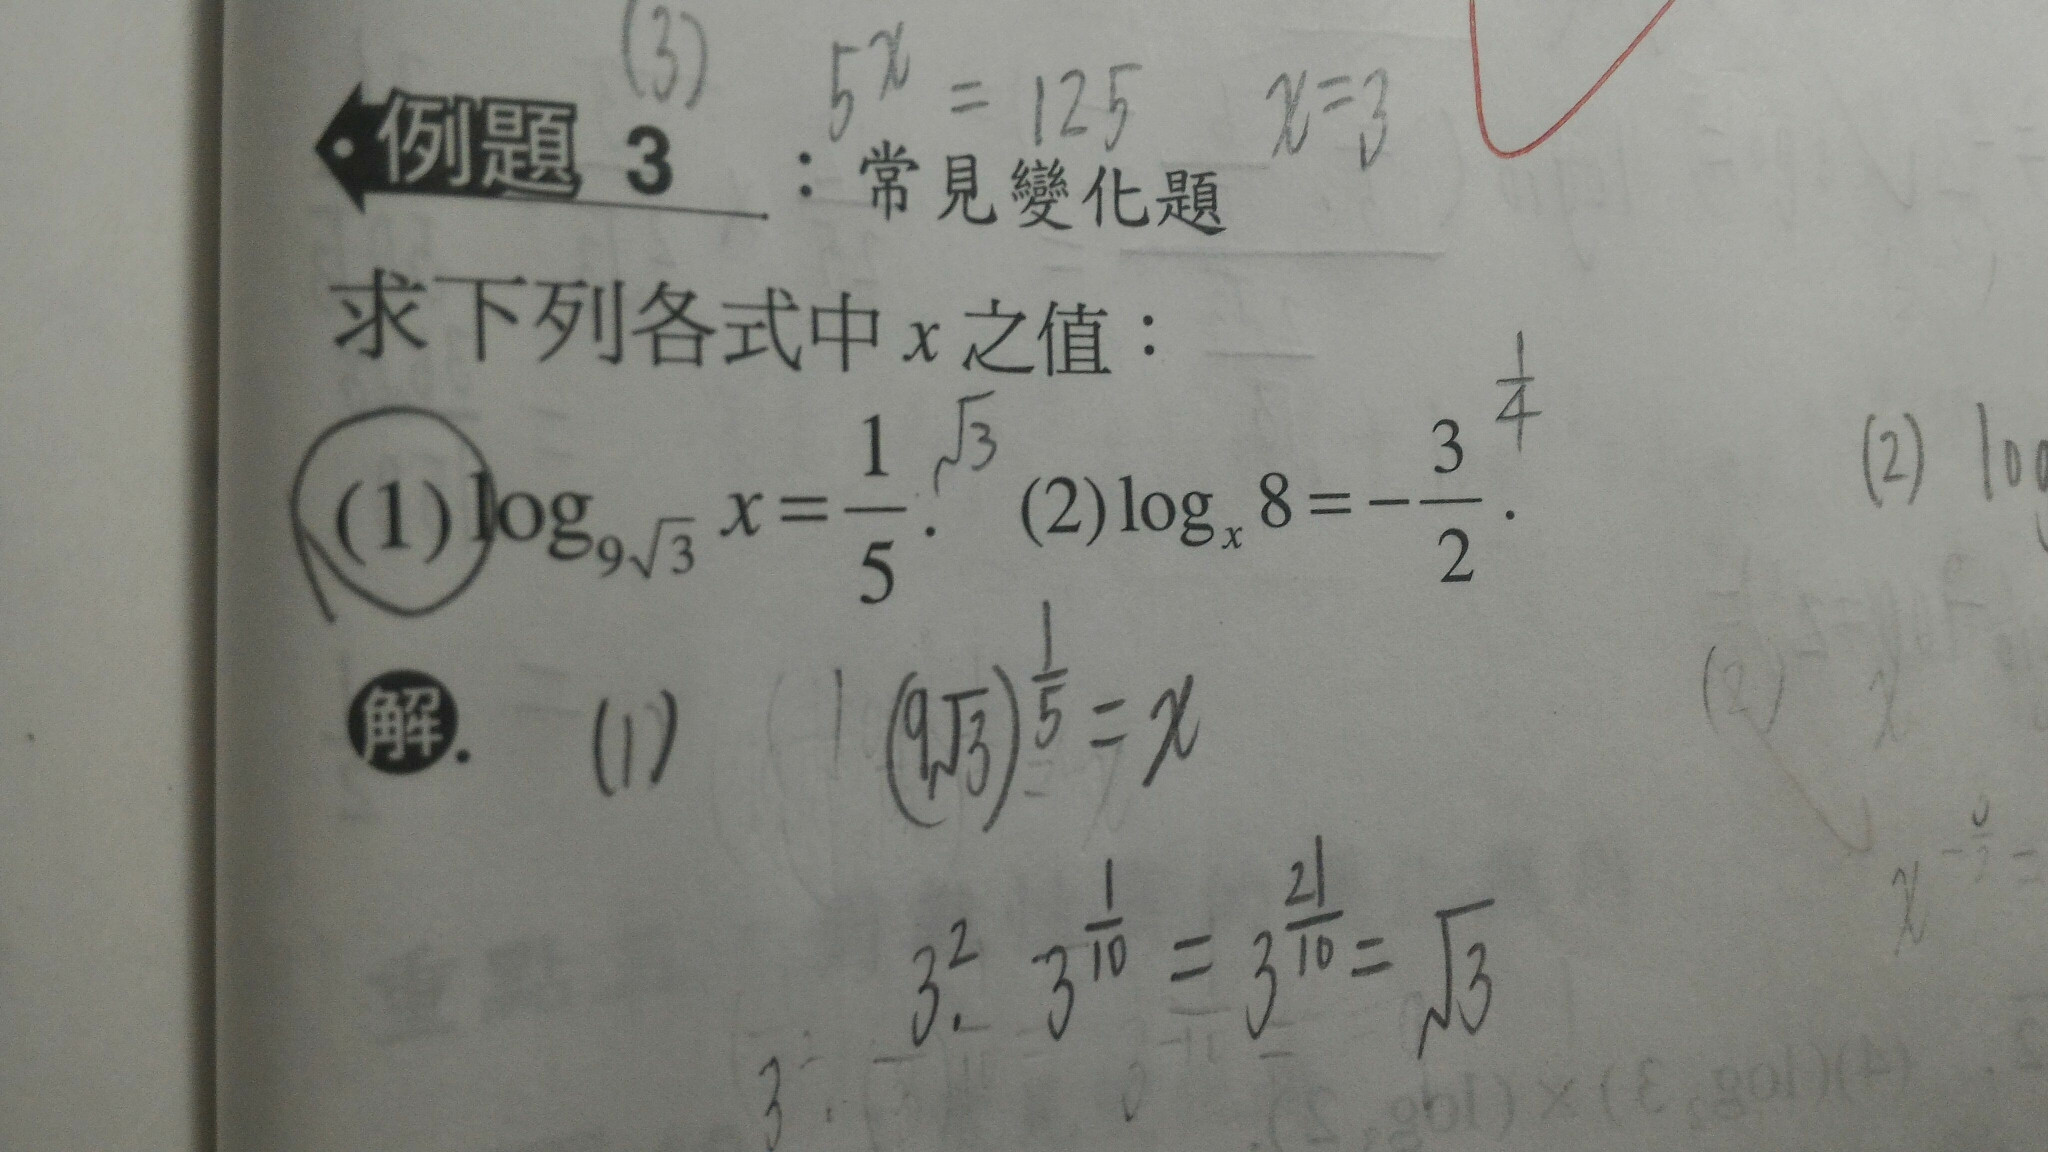 (3) 5^x = 125 x=3
例題 3 ：常見變化題
求下列各式中 x 之值：
(1) log_{9√3} x = 1/5 . √3 (2) log_x 8 = -3/2 . 1/4
(2) log
解. (1) (9√3)^{1/5} = x
3^2 . 3^{1/10} = 3^{21/10} = √3